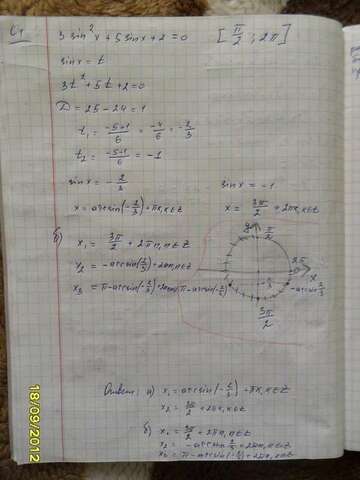 C1 3 sin² x + 5 sin x + 2 = 0 [π/2 ; 2π]
sin x = t
3t² + 5t + 2 = 0
D = 25 - 24 = 1
t₁ = -5+1/6 = -4/6 = -2/3
t₂ = -5-1/6 = -1
sin x = -2/3 sin x = -1
x = arcsin(-2/3) + πk, k∈Z x = 3π/2 + 2πk, k∈Z
б) x₁ = 3π/2 + 2πn, n∈Z
x₂ = -arcsin(2/3) + 2πn, n∈Z
x₃ = π - arcsin(-2/3) + 2πn
y π/2
2π x
π - arcsin(-2/3) -2/3 -arcsin 2/3
3π/2
Ответ: а) x₁ = arcsin(-2/3) + πk, k∈Z
x₂ = 3π/2 + 2πk, k∈Z
б) x₁ = 3π/2 + 2πn, n∈Z
x₂ = -arcsin 2/3 + 2πn, n∈Z
x₃ = π - arcsin(-2/3) + 2πn, n∈Z
18/09/2012